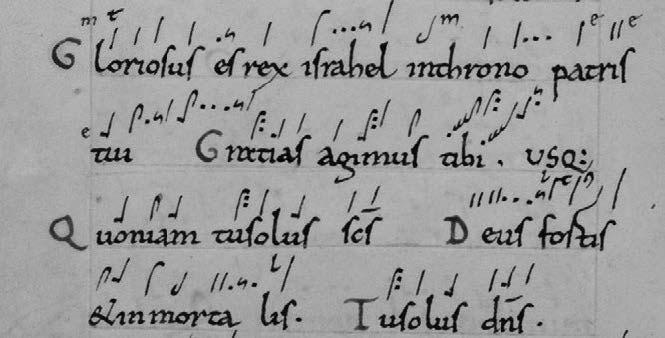 Gloriosus es rex israhel in throno patris
tui Gratias agimus tibi . USQ:,
Quoniam tu solus scs Deus fortis
& in morta lis. Tu solus dns.